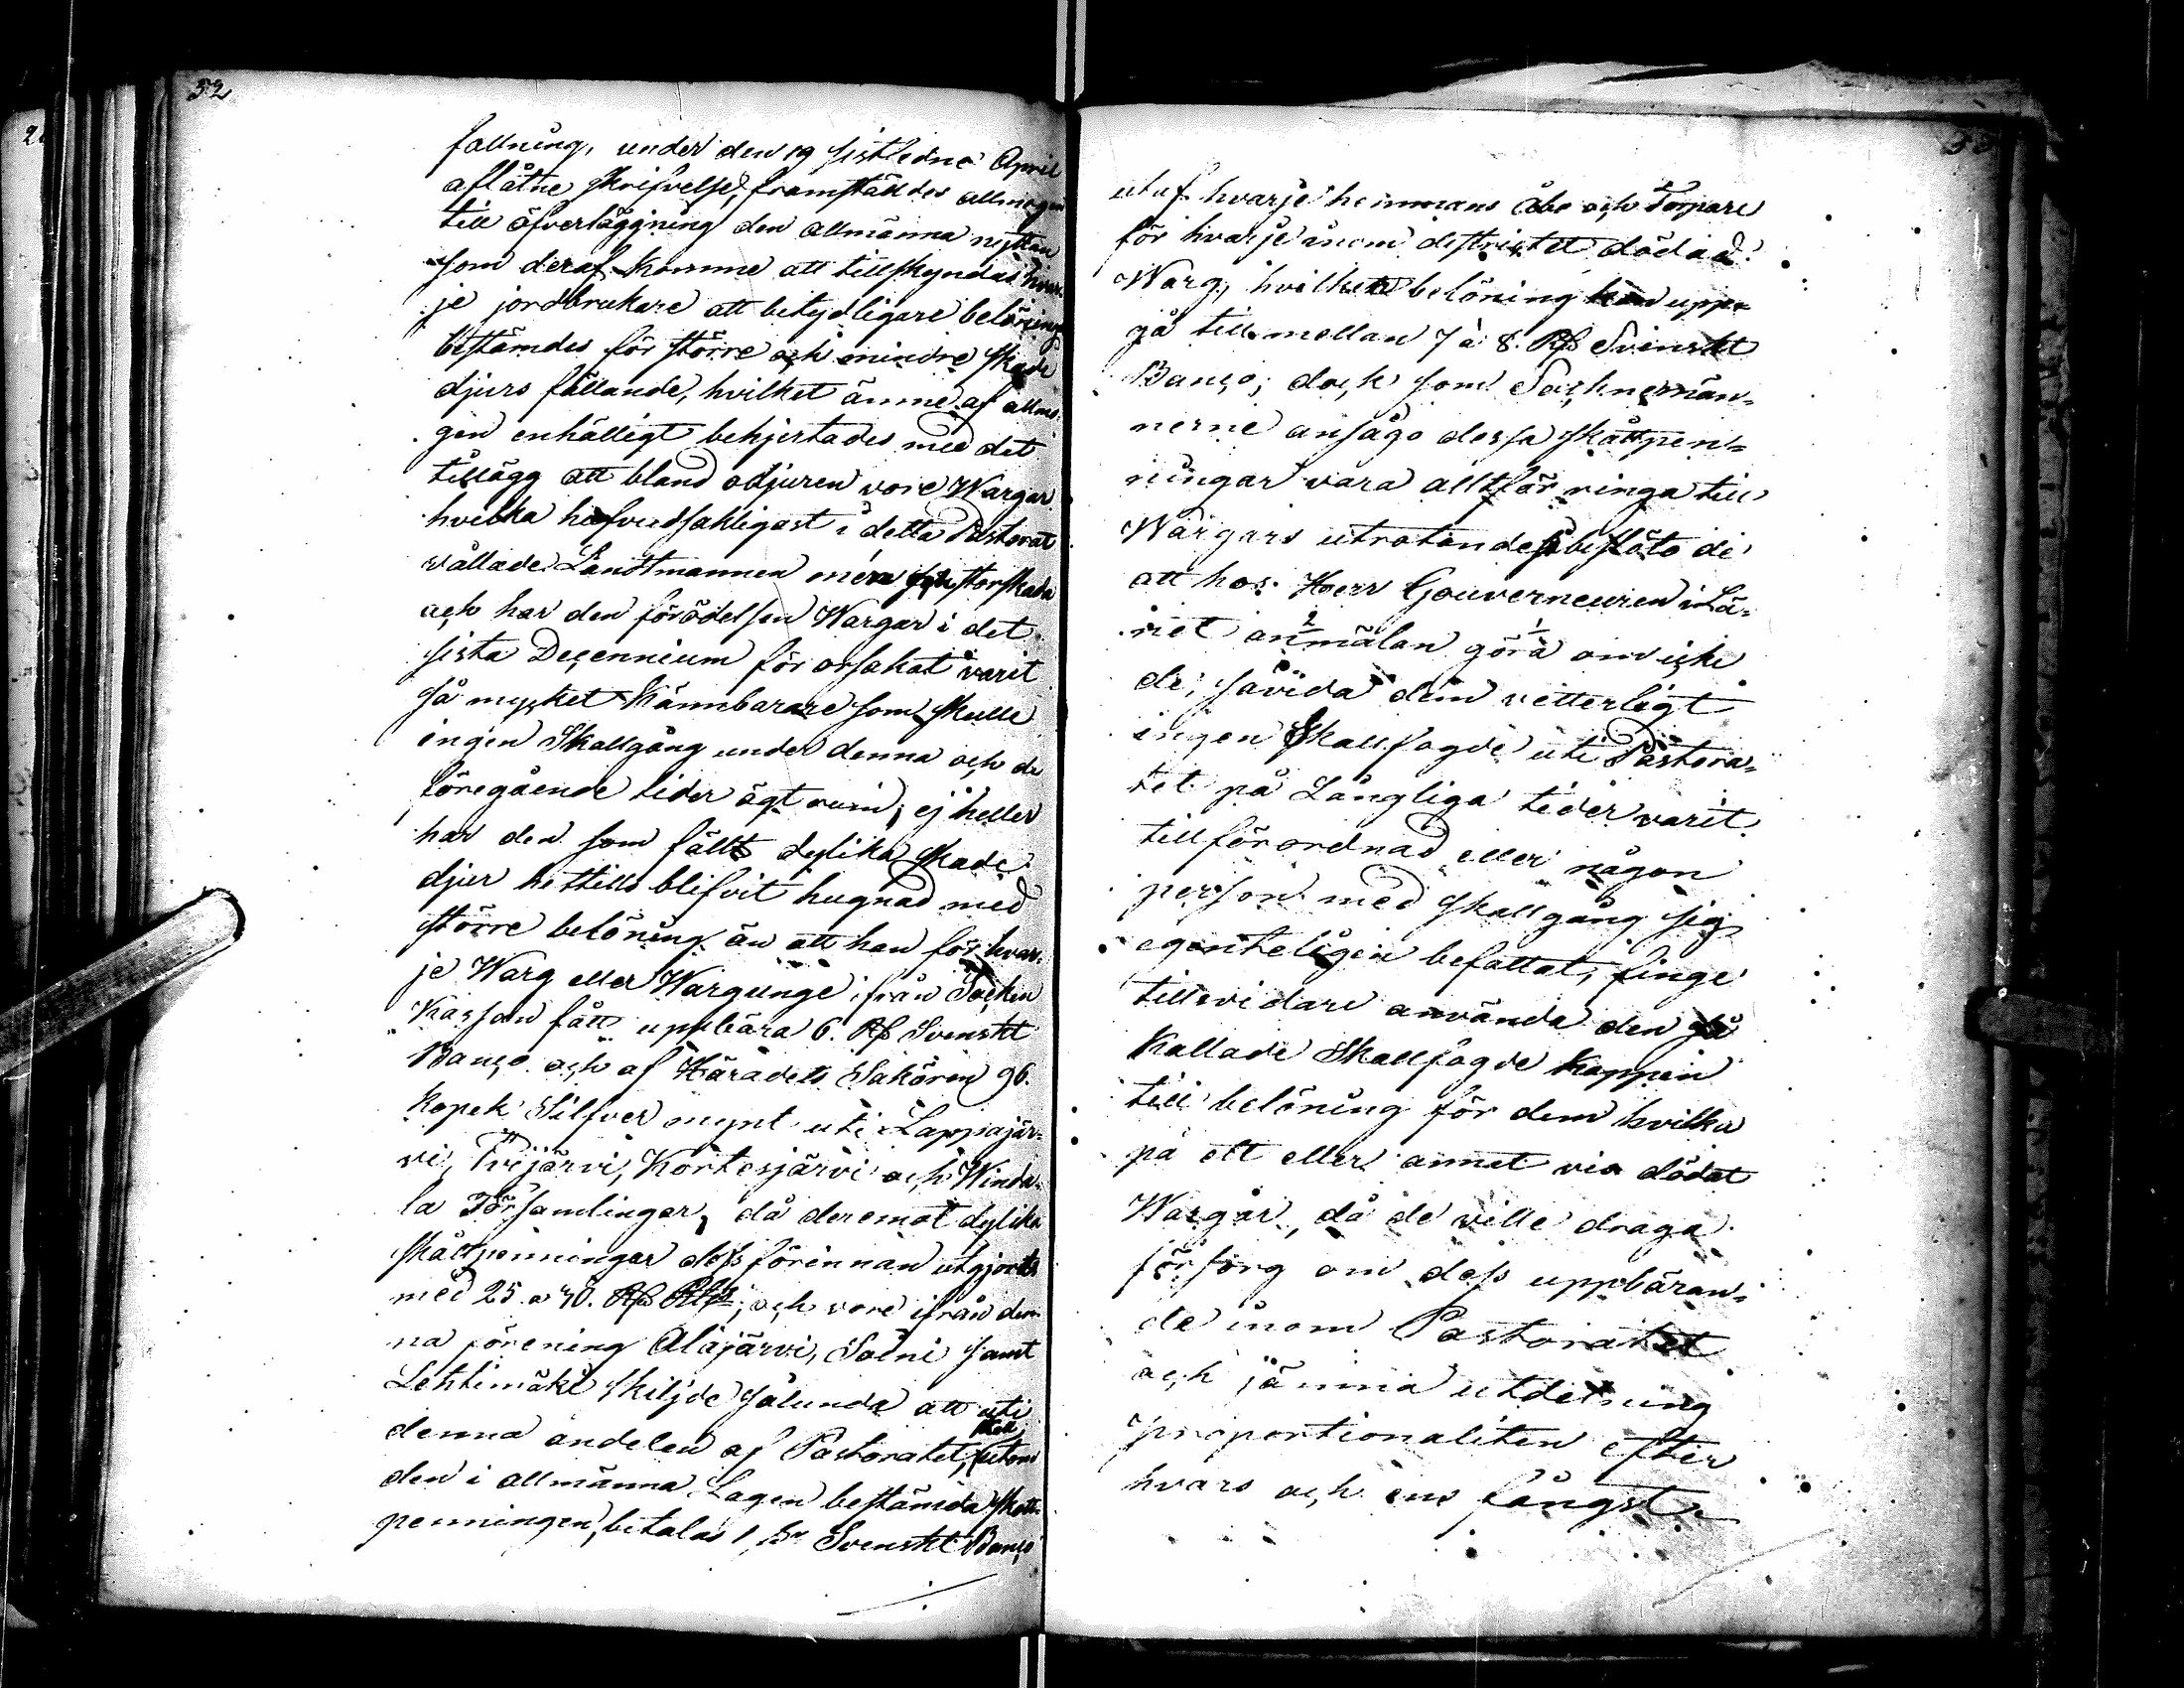 52
fallning, under den 19 sistledne April
aflåtne skrifvelse, framställdes allmogen
till öfverläggning den allmänna nyttan
som deraf komme att tillskyndas hvar-
je jordbrukare att betydligare belöning
bestämdes för större och mindre skade
djurs fällande, hvilket ämne af allmo-
gen enhälligt behjertades med det
tillägg att bland odjuren vore Wargar
hvilka hufvudsakligast i detta Pastorat
vållade Landtmannen mera stor skada
och har den förödelsen Wargar i det
sista Decennium för orsakat varit
så mycket kännbarare som skulle
ingen Skallgång under denna och de
föregående tider ägt rum; ej heller
har den som fällt dylika skade
djur hittills blifvit hugnad med
större belöning än att han för hvar-
je Warg eller Wargunge ifrån Socken
Kassan fått uppbära 6. Rß Svenskt
Banco och af Häradets Sakören 96.
Kopek Silfver mynt uti Lappajär-
vi, Evijärvi, Kortesjärvi och Winda-
la Församlingar, då deremot dylika
skottpenningar dess förinnan utgjorts
med 25 a 30. Rß; och vore ifrån den-
na förening Alajärvi, Soini samt
Lehtimäki skiljde sålunda att uti
denna andelen af Pastoratet, utom
den i allmänna Lagen bestämda skott-
penningen, betalas 1 Svenskt Banco
utaf hvarje hemmans Åbo och Torpare
för hvarje inom destrictet dödad
Warg, hvilken belöning kan upp-
gå till mellan 7 à 8. Rß Svenskt
Banco; dock som Socknemän-
nerne ansågo dessa skottpen-
ningar vara alltför ringa till
Wargars utrotande, beslöto de
att hos Herr Gouverneuren i Lä-
net anmälan göra om icke
de, såvida dem vetterligt
ingen Skallfogde uti Pastora-
tet på Långliga tider varit
tillförordnad eller någon
person med skallgång sig
egenteligen befattat, finge
tillsvidare använda den så
kallade Skallfogde kappen
till belöning för dem hvilka
på ett eller annat vis dödat
Wargar, då de ville draga
försorg om dess uppbäran-
de inom Pastoratet
och jämna utdelning
proportionaliten efter
hvars och ens fångst.